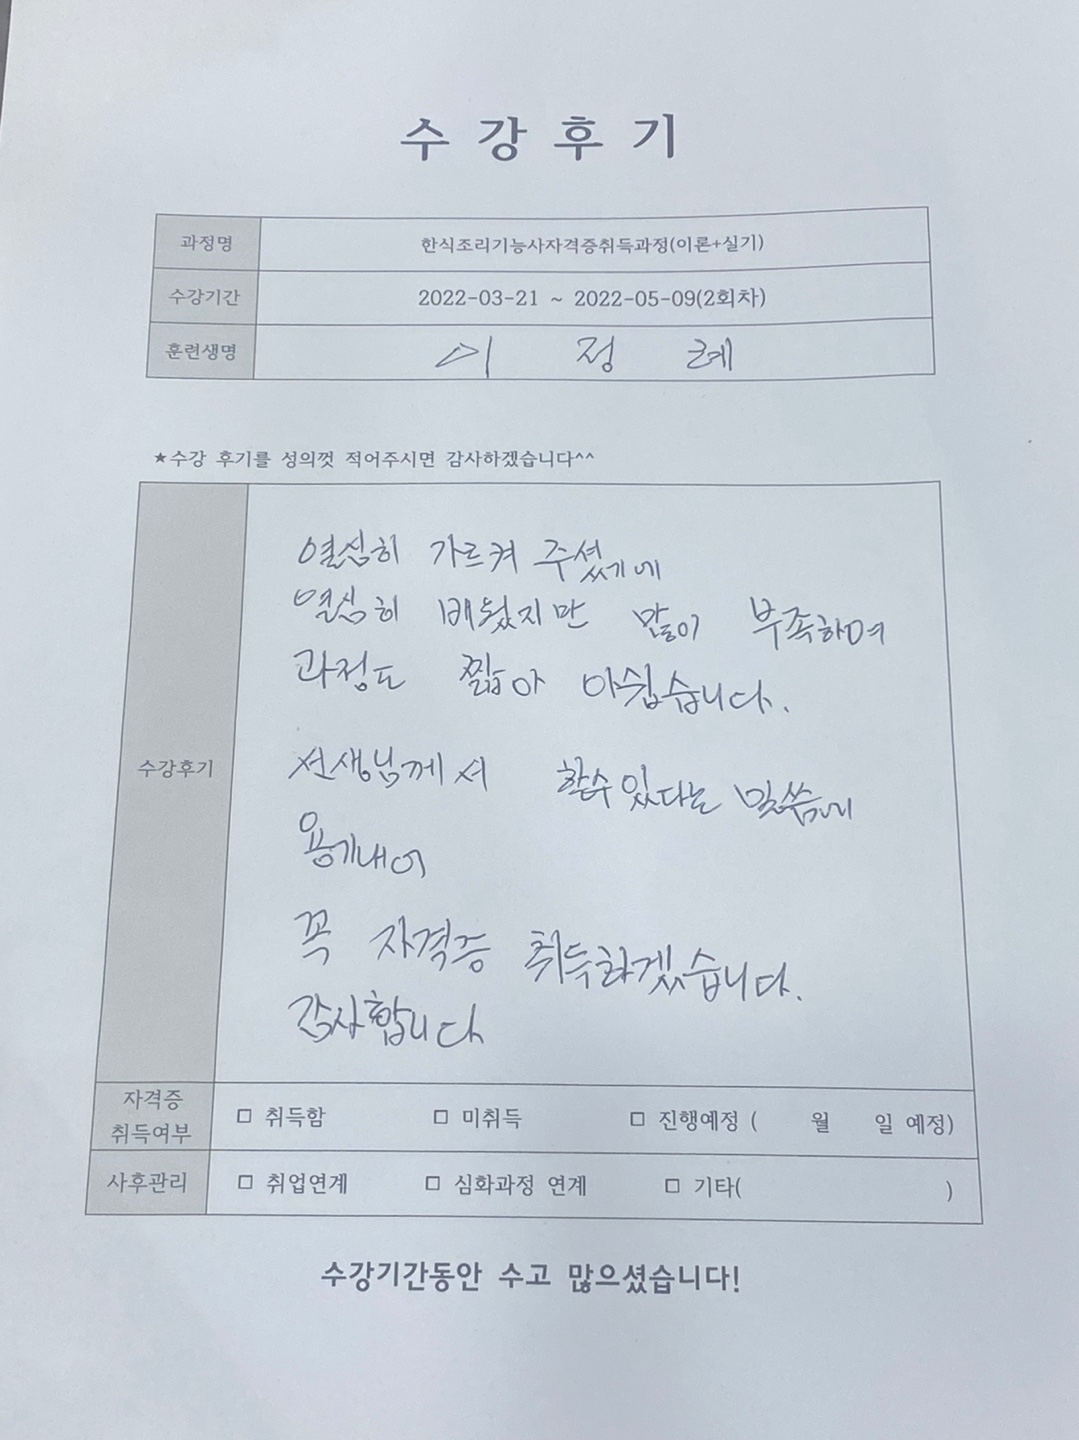 수 강 후 기
과정명 한식조리기능사자격증취득과정(이론+실기)
수강기간 2022-03-21 ~ 2022-05-09(2회차)
훈련생명 이 정 례
★수강 후기를 성의껏 적어주시면 감사하겠습니다^^
수강후기
열심히 가르켜 주셨는데
열심히 배웠지만 많이 부족하며
과정도 짧아 아쉽습니다.
선생님께서 할수있다는 말씀에
용기내어
꼭 자격증 취득하겠습니다.
감사합니다
자격증 취득여부 □ 취득함 □ 미취득 □ 진행예정 ( 월 일 예정)
사후관리 □ 취업연계 □ 심화과정 연계 □ 기타( )
수강기간동안 수고 많으셨습니다!